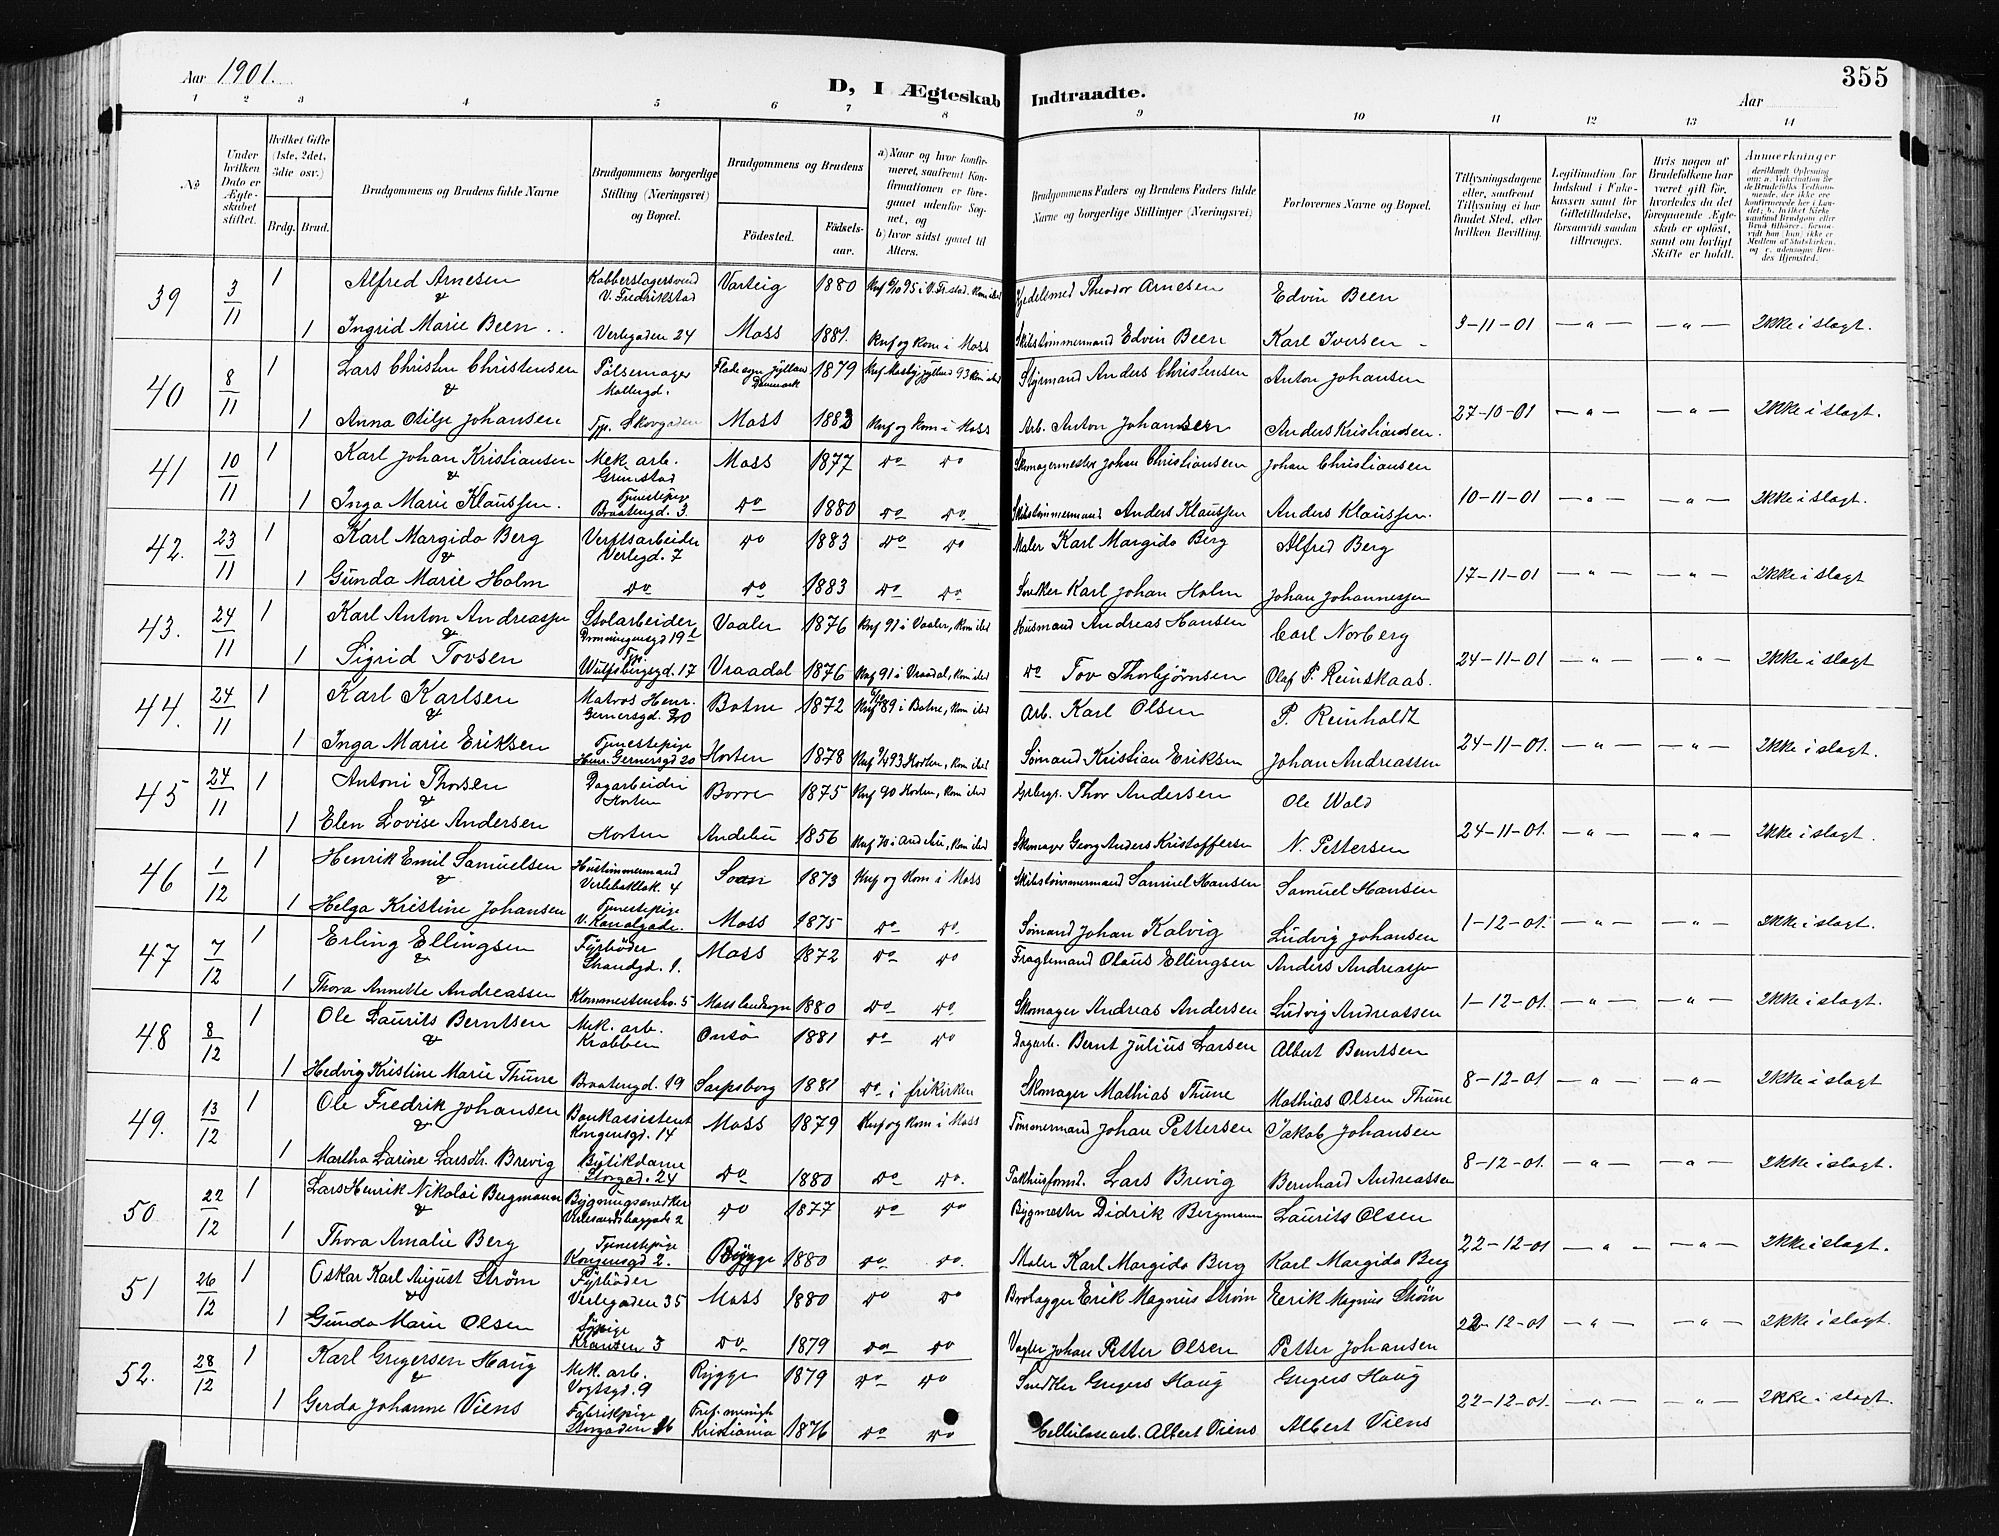 Aar 1901.
D, I Ægteskab Indtraadte.
355
Aar
1 2 3 4 5 6 7 8 9 10 11 12 13 14
№
Under hvilken Dato er Ægteskabet stiftet.
Hvilket Gifte (1ste, 2det, 3die osv.)
Brdg. Brud.
Brudgommens og Brudens fulde Navne
Brudgommens borgerlige Stilling (Næringsvei) og Bopæl.
Brudgommens og Brudens
Fødested.
Fødselsaar.
a) Naar og hvor konfirmeret, saafremt Konfirmationen er foregaaet udenfor Sognet, og
b) hvor sidst gaaet til Alters.
Brudgommens Faders og Brudens Faders fulde Navne og borgerlige Stillinger (Næringsvei)
Forlovernes Navne og Bopæl.
Tillysningsdagene eller, saafremt Tillysning ei har fundet Sted, efter hvilken Bevilling.
Legitimation for Indskud i Enkekassen samt for Giftetilladelse, forsaavidt saadan tiltrænges.
Hvis nogen af Brudefolkene har været gift før, hvorledes da det foregaaende Ægteskab er opløst, samt om lovligt Skifte er holdt.
Anmærkninger
39 3/11 1 Alfred Arnesen Kobberslagersvend V. Fredrikstad Varteig 1880 Knf 6/10 95 i V. Fr.stad. Kom ibid Gjørdelsmed Theodor Arnesen Edvin Been
&
1 Ingrid Marie Been Verlegaden 24 Moss 1881. Knf og kom i Moss Skibstømmermand Edvin Been Karl Iversen 3-11-01 — „ — — „ — Ikke i slægt.
40 8/11 1 Lars Christen Christensen Pølsemager Møllergd. Flade sogn Jylland Danmark 1879 Knf Mosbjr Jylland 93 Kom ibid Styrmand Anders Christensen Anton Johansen
&
1 Anna Otilje Johansen Tjp. Skovgaden Moss 1883 Knf og kom i Moss Arb. Anton Johansen Anders Kristiansen. 27-10-01 — „ — — „ — Ikke i slægt.
41 10/11 1 Karl Johan Kristiansen Mek. arb. Grimstad Moss 1877 do do Skomagermester Johan Christiansen Johan Christiansen
&
1 Inga Marie Klaussen. Tjenestepige Braatengd. 3 do 1880 do do. Skibstømmermand Anders Klaussen Anders Klaussen. 10-11-01 — „ — — „ — Ikke i slægt.
42. 23/11 1 Karl Margido Berg Verftsarbeider Verlegd. 7 do 1883 do do Maler Karl Margido Berg Alfred Berg
&
1 Gunda Marie Holm do do 1883 do do. Snedker Karl Johan Holm Johan Johannessen 17-11-01 — „ — — „ — Ikke i slægt
43. 24/11 1 Karl Anton Andreassen Stolarbeider Dronningensgd 19 Vaaler 1876 Knf 91 i Vaaler, Kom ibd Husmand Andreas Hansen Carl Norberg
&
1 Sigrid Tovsen Tjp. Wulfsbergsgd. 17 Vraadal 1876 Knf 91 i Vraadal, Kom ibd do Tov Thorbjørnsen Olaf P. Reinskaas. 24-11-01 — „ — — „ — Ikke i slægt.
44. 24/11 1 Karl Karlsen Matros Henr. Gernersgd. 20 Botne 1872 Knf 89 i Botne, Kom ibd Arb. Karl Olsen P. Reinholdt
&
1 Inga Marie Eriksen Tjenestepige Henr. Gernersgd 20 Horten 1878 Knf 93 Horten, Kom ibd Sømand Kristian Eriksen Johan Andreassen 24-11-01. — „ — — „ — Ikke i slægt.
45 24/11 1 Antoni Thorsen Dagarbeider Horten Borre 1875 Knf 90 Horten, Kom ibd Thor Andersen Ole Wold
&
1 Elen Lovise Andersen Horten Andebu 1856 Knf 70 i Andebu, Kom ibd Skomager Georg Anders Kristoffersen N. Pettersen 24-11-01. — „ — — „ — Ikke i slægt.
46 1/12 1 Henrik Emil Samuelsen Hustømmermand Verlebakkek. 4 Soon 1873 Knf og Kom i Moss Skibstømmermand Samuel Hansen Samuel Hansen
&
1 Helga Kristine Johansen Tjenestepige V. Kanalgade. Moss 1875 do do. Sømand Johan Kalvig Ludvig Johansen 1-12-01. — „ — — „ — Ikke i slægt.
47 7/12 1 Erling Ellingsen Fyrbøder Strandgd. 1. Moss 1872 do do Fragtemand Olaus Ellingsen Anders Andreassen
&
1 Thora Annette Andreassen Klommestensbr. 5 Moss landsogn 1880 do do Skomager Andreas Andersen Ludvig Andreassen 1-12-01. — „ — — „ — Ikke i slægt.
48 8/12 1 Ole Laurits Berntsen Mek. arb. Krabben Onsø 1881 do do Dagarb. Bernt Julius Larsen Albert Berntsen
&
1 Hedvig Kristine Marie Thune Braatengd. 19 Sarpsborg 1881 do i frikirken Skomager Mathias Thune Mathias Olsen Thune 8-12-01 — „ — — „ — Ikke i slægt
49. 13/12 1 Ole Fredrik Johansen Bankassistent Kongensgd. 14 Moss 1879 Knf og kom i Moss Tømmermand Johan Pettersen Jakob Johansen
&
1 Martha Larine Larsdt. Brevig Butikdame Storgad. 24 do 1880 do do. Pakhusformd. Lars Brevig Bernhard Andreassen 8-12-01. — „ — — „ — Ikke i slægt.
50 22/12 1 Lars Henrik Nikolai Bergmann Bygningssnedker Verlesandsbaggade 2 do 1877 do do Bygmester Didrik Bergmann Laurits Olsen
&
1 Thora Amalie Berg Tjenestepige Kongensgd 2. Rygge 1880 do do. Maler Karl Margido Berg Karl Margido Berg 22-12-01 — „ — — „ — Ikke i slægt.
51 26/12 1 Oskar Karl August Strøm Fyrbøder Verlegaden 35 Moss 1880 do do Brolægger Erik Magnus Strøm Eerik Magnus Strøm
&
1 Gunda Marie Olsen Sypige Kransen 3 do 1879 do do Vægter Johan Petter Olsen Petter Johansen 22-12-01 — „ — — „ — Ikke i slægt.
52. 28/12 1 Karl Gregersen Haug Mek. arb. Vogtsgd. 9 Rygge 1879 do do Snedker Gregers Haug Gregers Haug
&
1 Gerda Johanne Viens Fabrikpige Storgaden 26 Tref. menigh Kristiania 1876 do do Cellulosearb. Albert Viens Albert Viens 22-12-01. — „ — — „ — Ikke i slægt